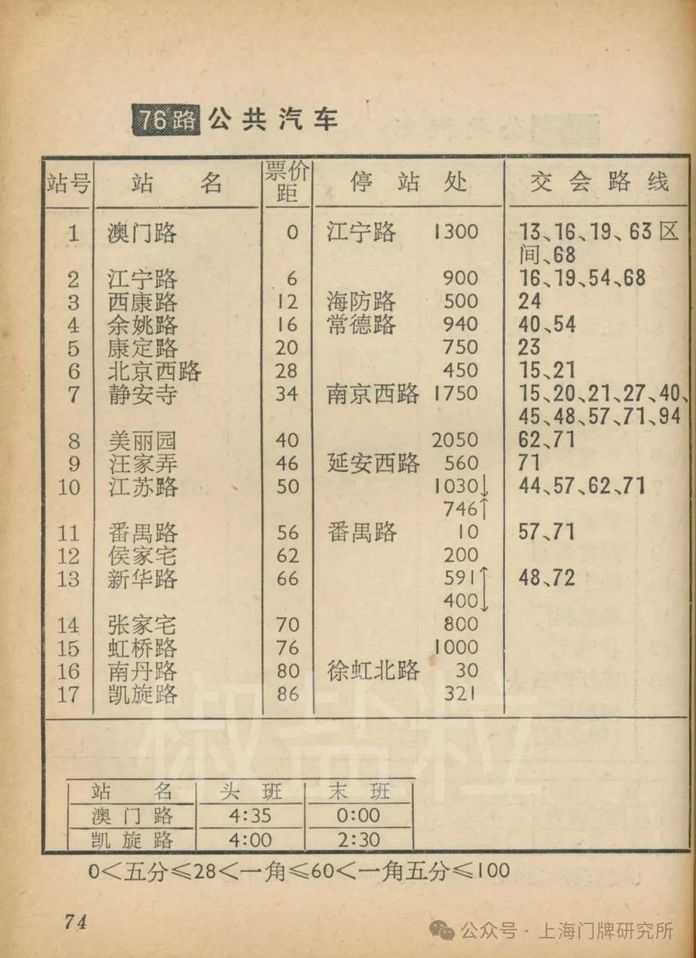 76路 公共汽车
站号 站名 票价距 停站处 交会路线
1 澳门路 0 江宁路 1300 13、16、19、63区
间、68
2 江宁路 6 900 16、19、54、68
3 西康路 12 海防路 500 24
4 余姚路 16 常德路 940 40、54
5 康定路 20 750 23
6 北京西路 28 450 15、21
7 静安寺 34 南京西路 1750 15、20、21、27、40、
45、48、57、71、94
8 美丽园 40 2050 62、71
9 汪家弄 46 延安西路 560 71
10 江苏路 50 1030↓ 44、57、62、71
746↑
11 番禺路 56 番禺路 10 57、71
12 侯家宅 62 200
13 新华路 66 591↑ 48、72
400↓
14 张家宅 70 800
15 虹桥路 76 1000
16 南丹路 80 徐虹北路 30
17 凯旋路 86 321
椒盐粒
站名 头班 末班
澳门路 4:35 0:00
凯旋路 4:00 2:30
0<五分≤28<一角≤60<一角五分≤100
74
公众号·上海门牌研究所